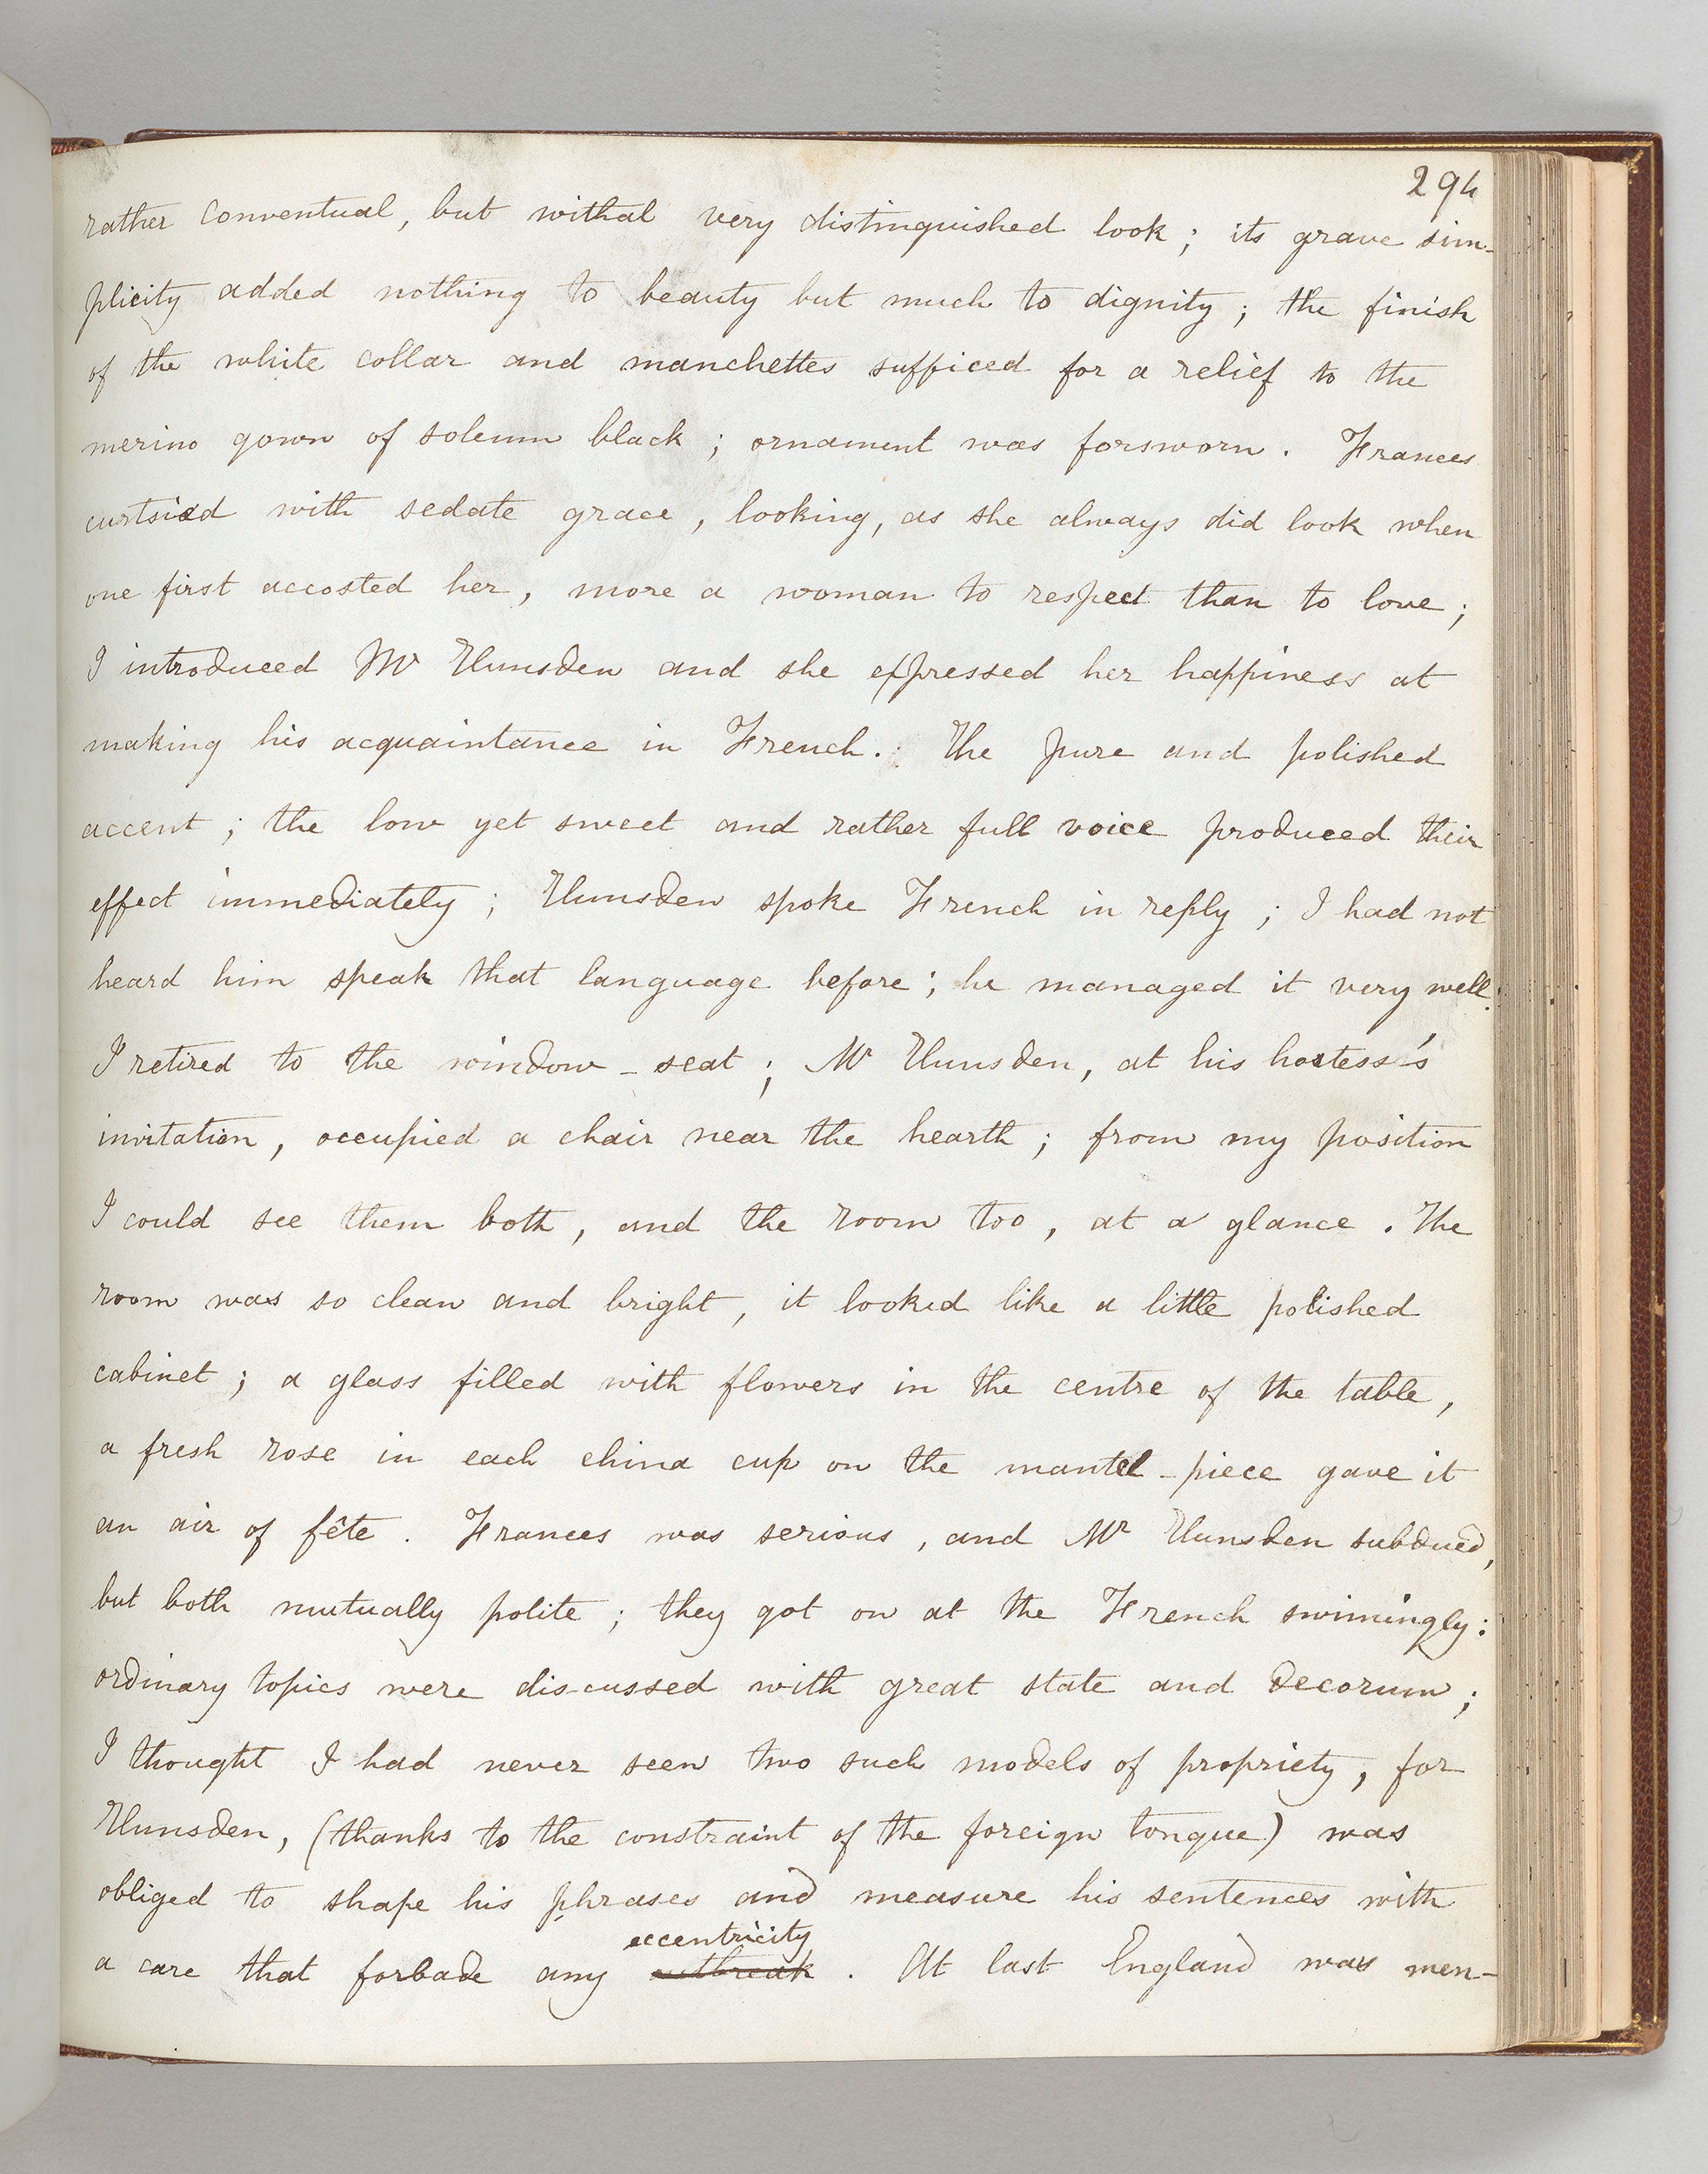 294
rather conventual, but withal very distinguished look; its grave sim-
plicity added nothing to beauty but much to dignity; the finish
of the white collar and manchettes sufficed for a relief to the
merino gown of solemn black; ornament was forsworn. Frances
curtsied with sedate grace, looking, as she always did look when
one first accosted her, more a woman to respect than to love;
I introduced Mr Hunsden and she expressed her happiness at
making his acquaintance in French. The pure and polished
accent; the low yet sweet and rather full voice produced their
effect immediately; Hunsden spoke French in reply; I had not
heard him speak that language before; he managed it very well.
I retired to the window-seat; Mr Hunsden, at his hostess's
invitation, occupied a chair near the hearth; from my position
I could see them both, and the room too, at a glance. The
room was so clean and bright, it looked like a little polished
cabinet; a glass filled with flowers in the centre of the table,
a fresh rose in each china cup on the mantel-piece gave it
an air of fête. Frances was serious, and Mr Hunsden subdued,
but both mutually polite; they got on at the French swimingly:
ordinary topics were discussed with great state and decorum;
I thought I had never seen two such models of propriety, for
Hunsden, (thanks to the constraint of the foreign tongue) was
obliged to shape his phrases and measure his sentences with
eccentricity
a care that forbade any outbreak. At last England was men-